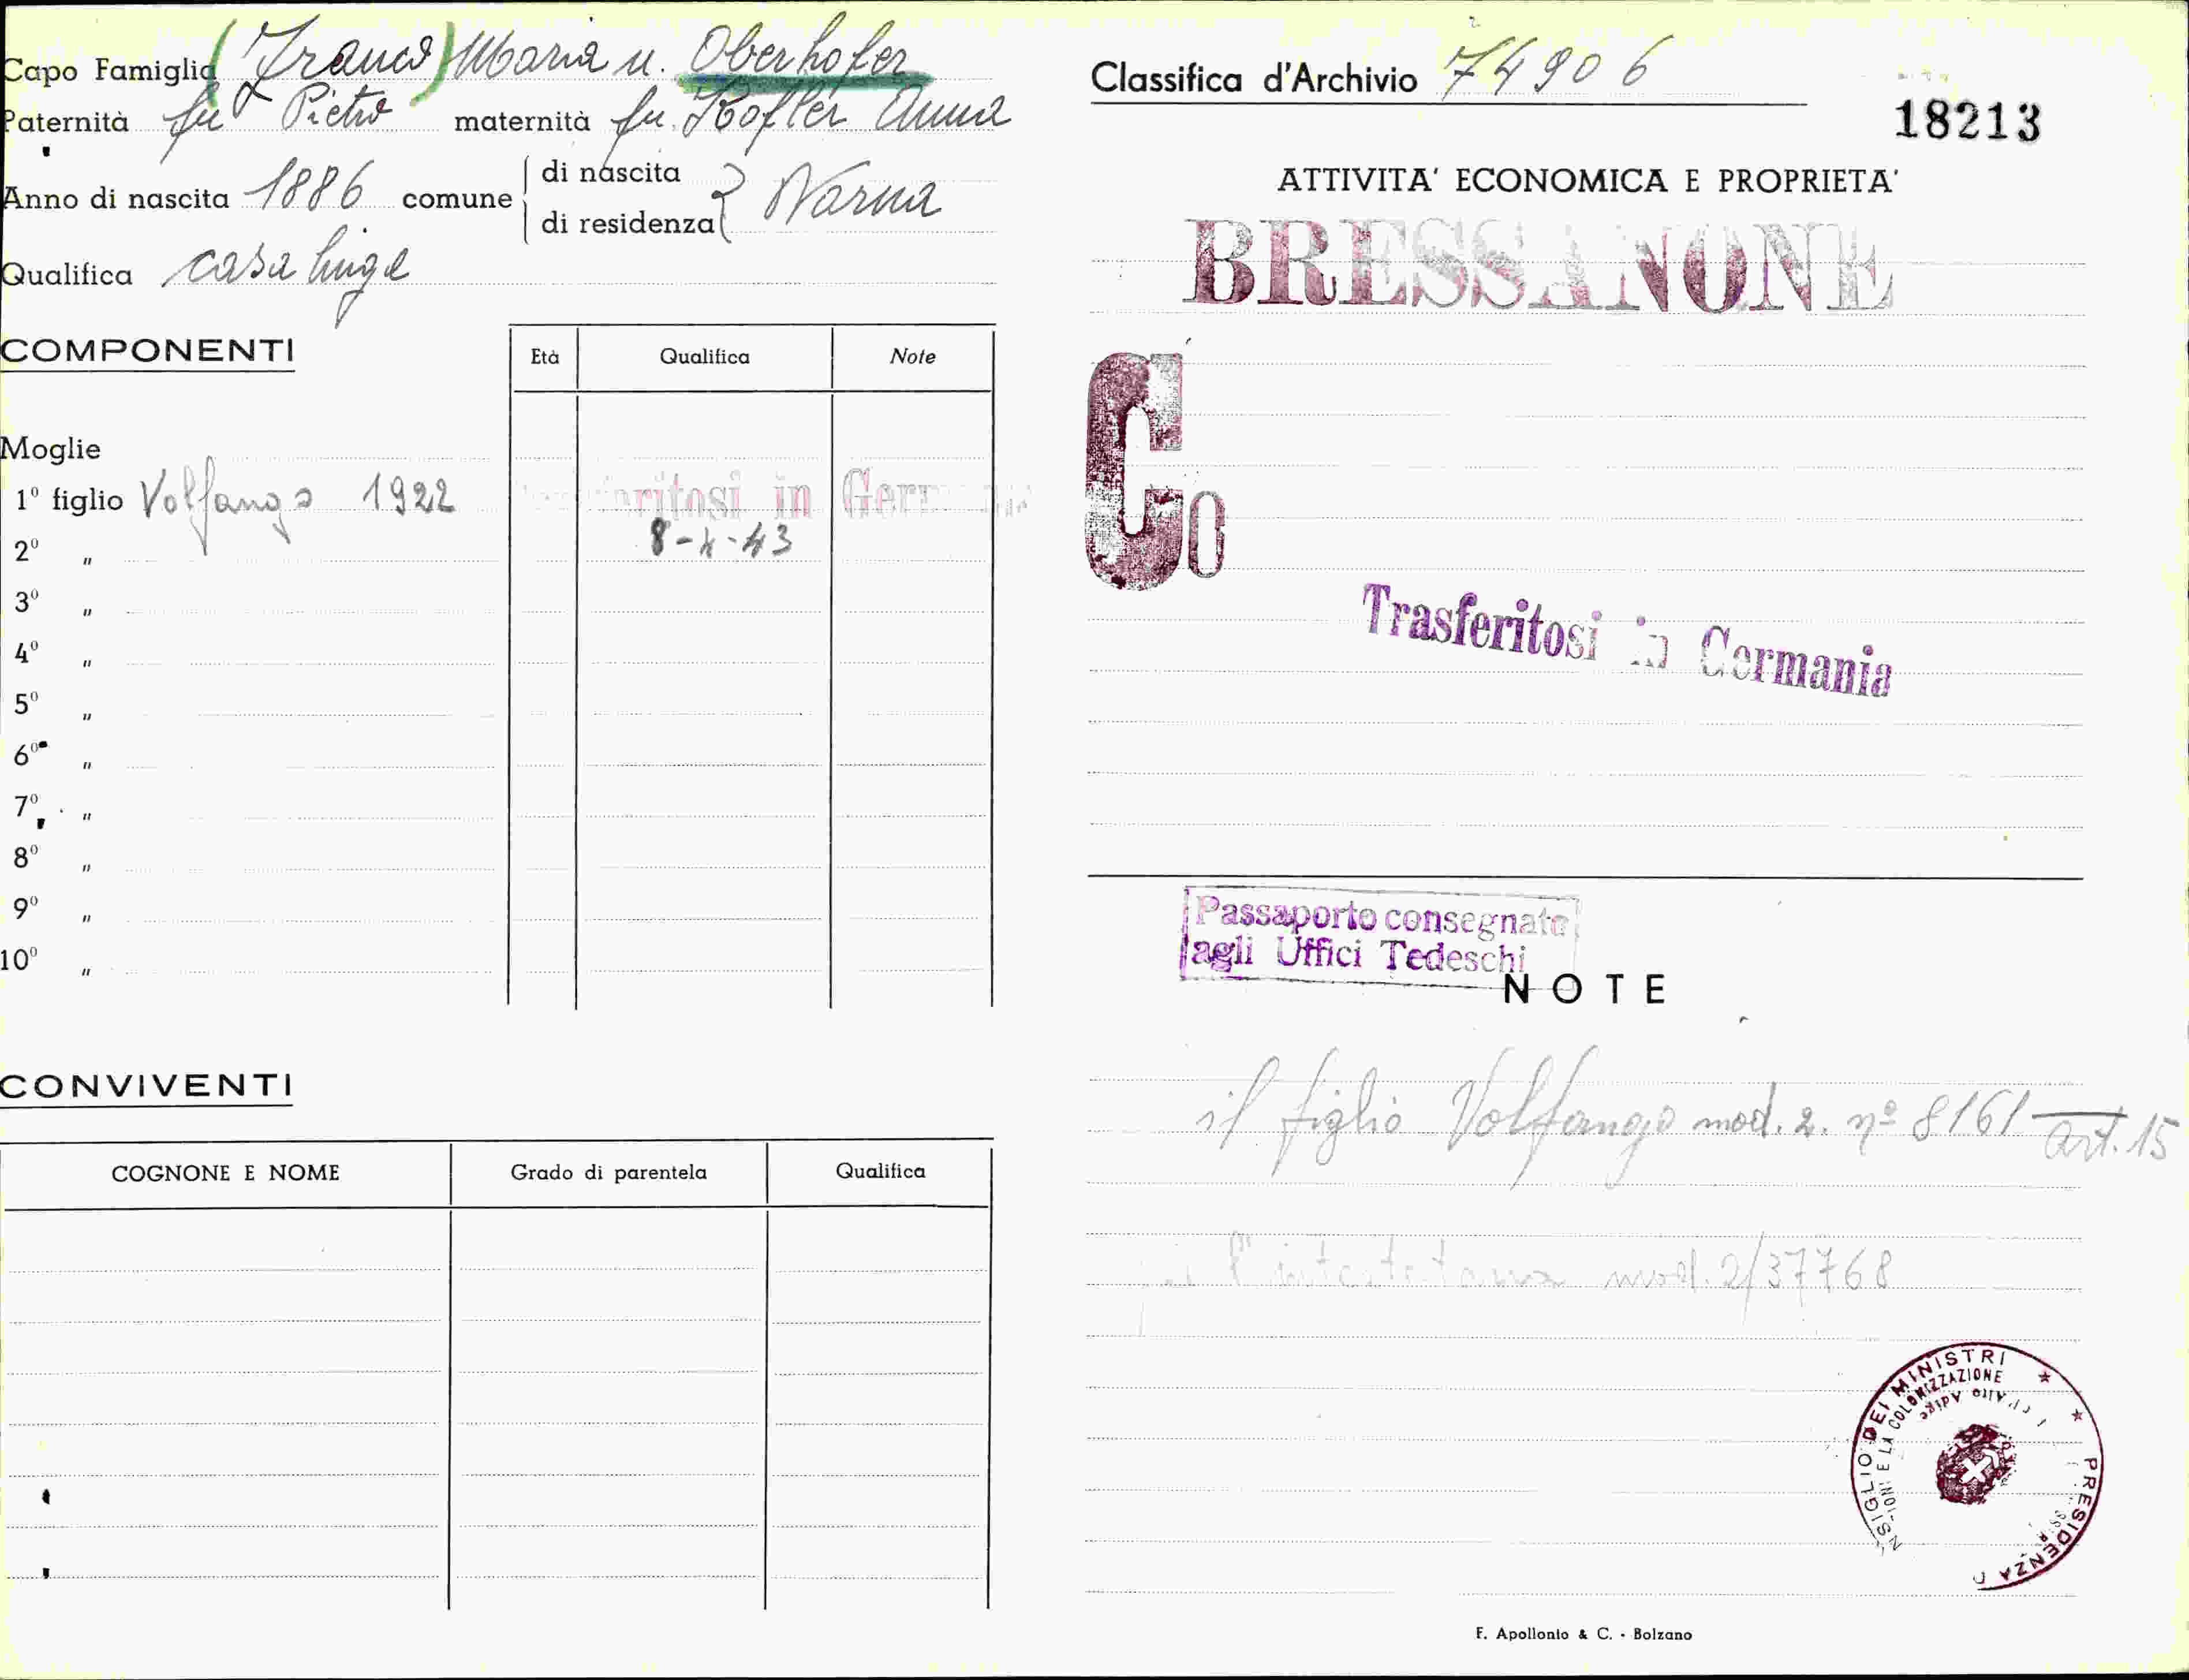 Capo Famiglia (Franco) Maria u. Oberhofer
Paternità fu Pietro maternità fu Kofler Anna
Anno di nascita 1886 comune di nascita di residenza Varna
Qualifica casalinga
COMPONENTI Età Qualifica Note
Moglie
1º figlio Volfango 1922 ritosi in Germ
2º " 8-4-43
3º "
4º "
5º "
6º "
7º "
8º "
9º "
10º "
CONVIVENTI
COGNONE E NOME Grado di parentela Qualifica
Classifica d'Archivio 74906
18213
ATTIVITA' ECONOMICA E PROPRIETA'
BRESSANONE
Co
Trasferitosi in Germania
Passaporto consegnato
agli Uffici Tedeschi
NOTE
il figlio Volfango mod. 2. nº 8161 art. 15
l'intestataria mod. 2/37768
NSIGLIO DEI MINISTRI ★ ★ PRESIDENZA
IONI E LA COLONIZZAZIONE
Alto Adige
F. Apollonio & C. - Bolzano